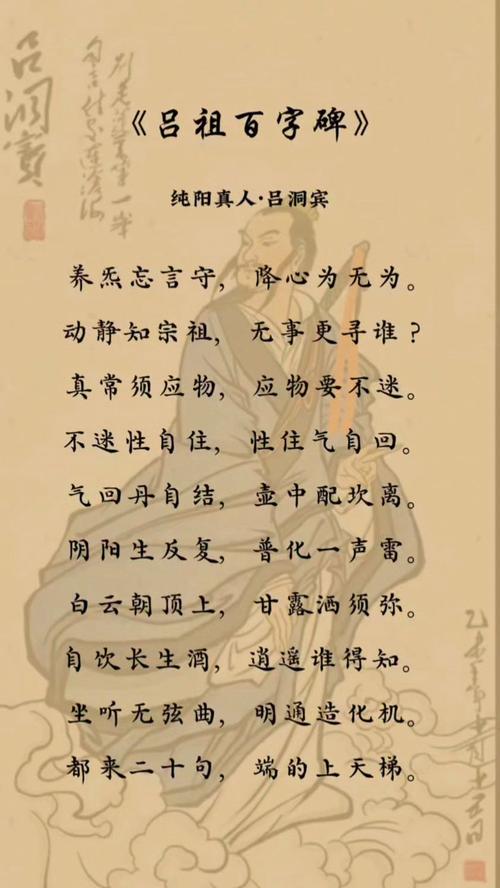 《吕祖百字碑》
纯阳真人·吕洞宾
养炁忘言守，降心为无为。
动静知宗祖，无事更寻谁？
真常须应物，应物要不迷。
不迷性自住，性住气自回。
气回丹自结，壶中配坎离。
阴阳生反复，普化一声雷。
白云朝顶上，甘露洒须弥。
自饮长生酒，逍遥谁得知。
坐听无弦曲，明通造化机。
都来二十句，端的上天梯。
吕洞宾